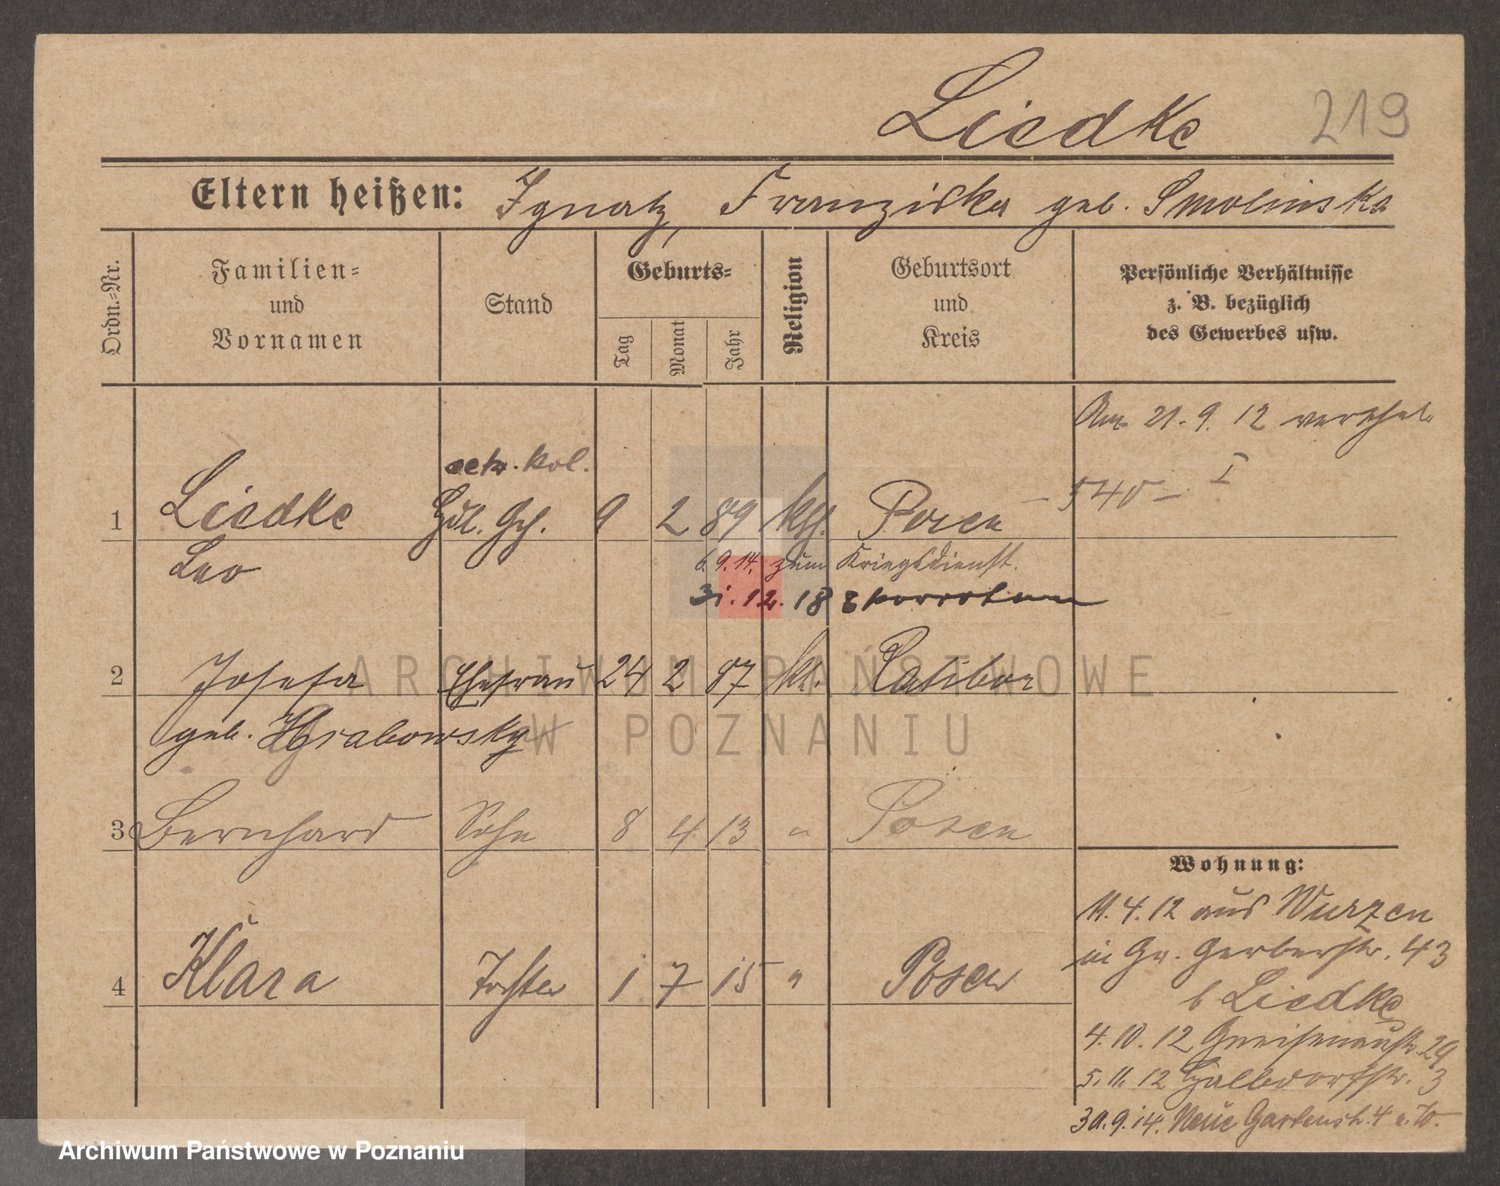 Liedke 219
Eltern heißen: Ignatz, Franziska geb. Smolinska
Ordn.-Nr.
Familien-
und
Vornamen
Stand
Geburts-
Tag
Monat
Jahr
Religion
Geburtsort
und
Kreis
Persönliche Verhältnisse
z. B. bezüglich
des Gewerbes usw.
21. 9. 12
540 – I
kol.
1 Liedke 9 2 89 kth. Posen
Leo
6.9.14. zum Kriegsdienst.
31.12.18
2 Josefa Ehefrau 24 2 87 kt. Ratibor
geb. Hrabowsky
3 Bernhard Sohn 8 4 13 " Posen
4 Klara Tochter 1 7 15 " Posen
Wohnung:
11.4.12 aus Wurzen
in Gr. Gerberstr. 43
b Liedke
4.10.12 Gneisenaustr. 29
5.11.12 Halbdorfstr. 3
30.9.14. Neue Gartenstr. 4
ARCHIWUM PAŃSTWOWE
W POZNANIU
Archiwum Państwowe w Poznaniu